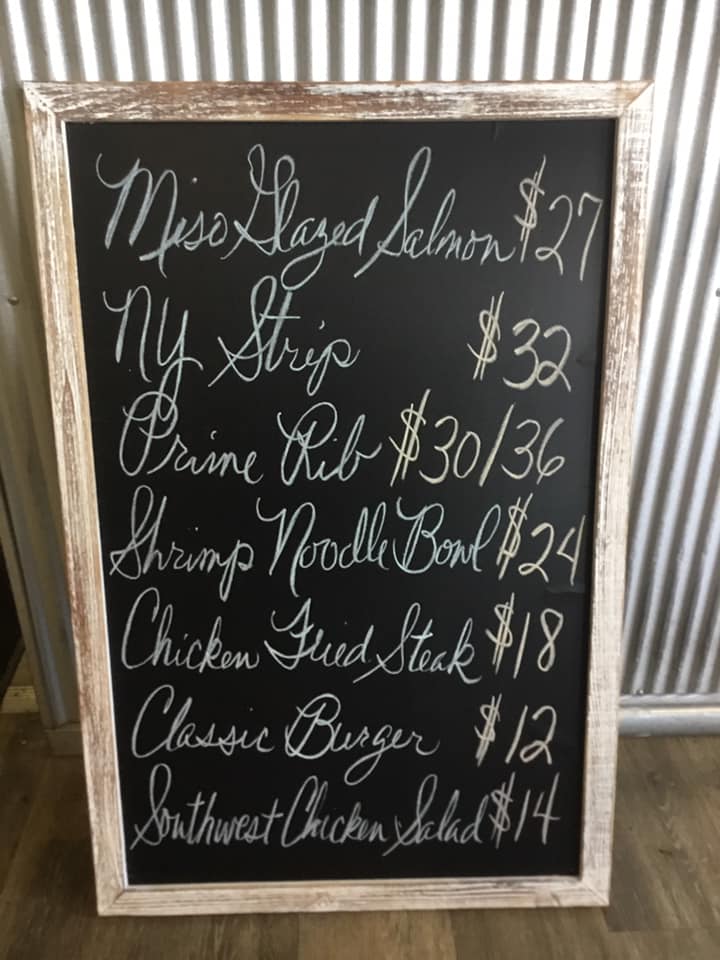 Miso Glazed Salmon $27
NY Strip $32
Prime Rib $30/36
Shrimp Noodle Bowl $24
Chicken Fried Steak $18
Classic Burger $12
Southwest Chicken Salad $14